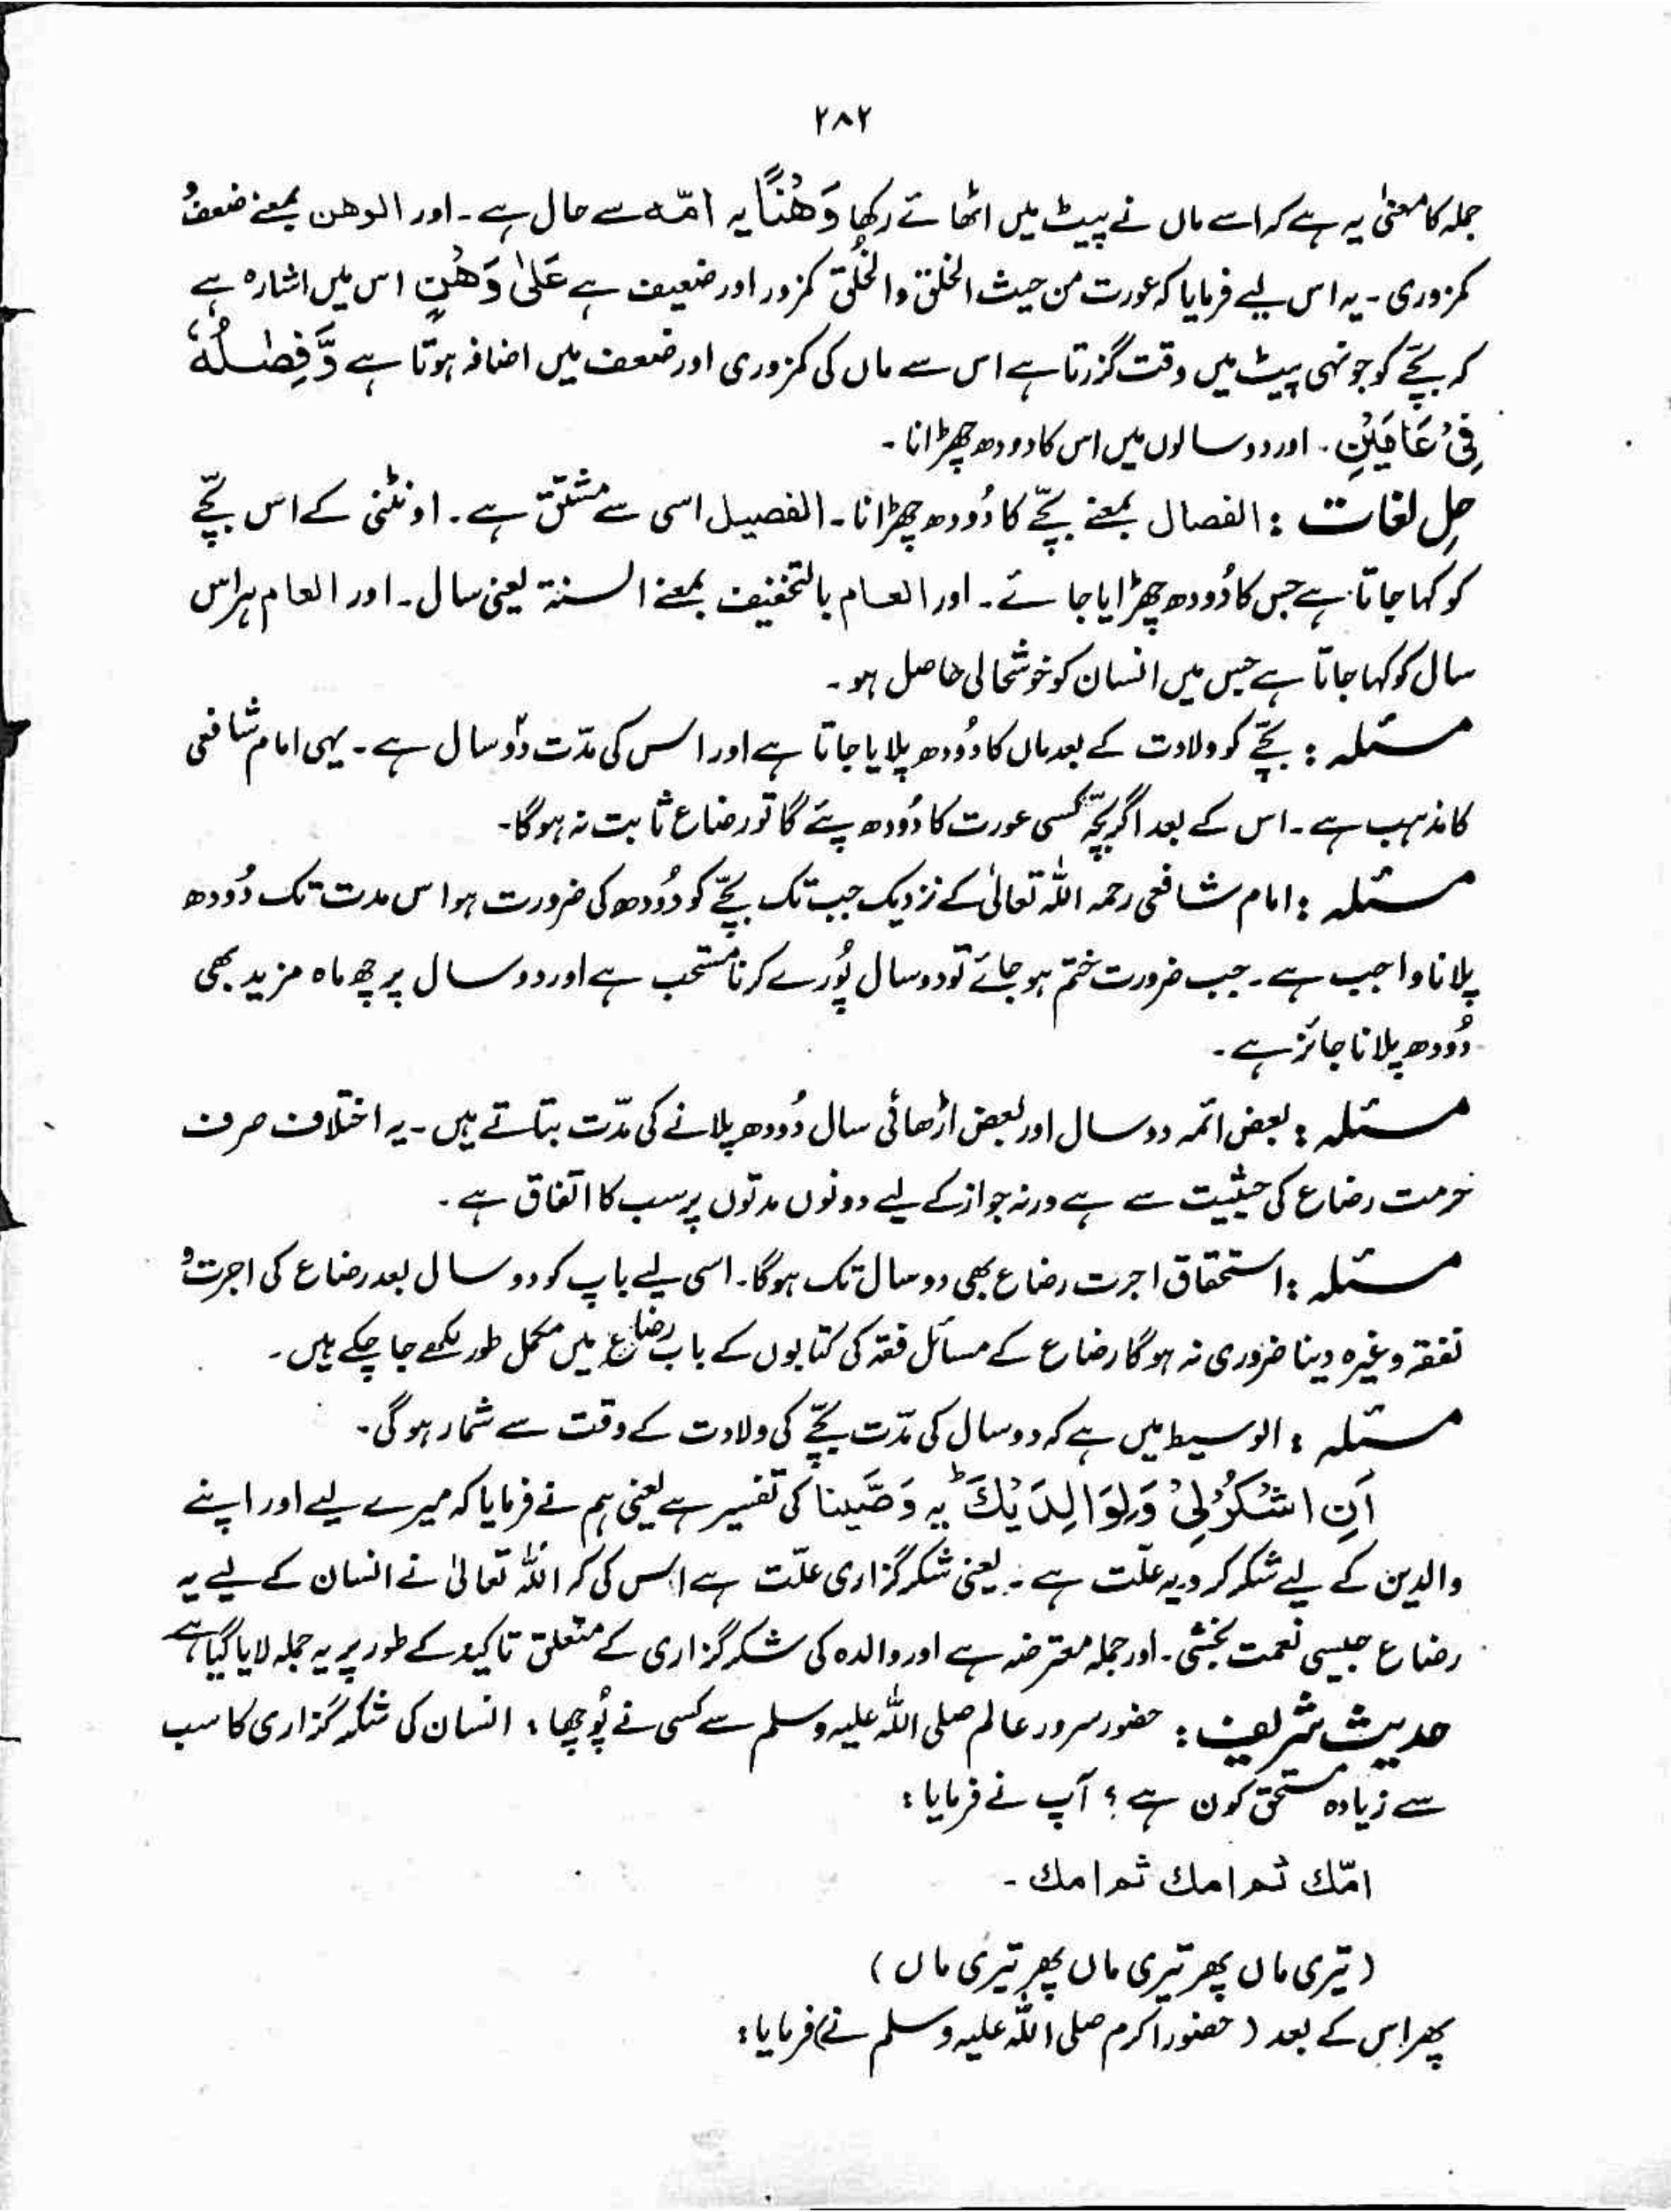 ۲۸۲
جملہ کا معنیٰ یہ ہے کہ اسے ماں نے پیٹ میں اٹھائے رکھا وَهْنًا یہ امّہ سے حال ہے۔ اور الوھن بمعنے ضعف و
کمزوری۔ یہ اس لیے فرمایا کہ عورت من حیث الخلق والخُلق کمزور اور ضعیف ہے عَلىٰ وَهْنٍ اس میں اشارہ ہے
کہ بچّے کو جونہی پیٹ میں وقت گزرتا ہے اس سے ماں کی کمزوری اور ضعف میں اضافہ ہوتا ہے وَّفِصٰلُهٗ
فِیْ عَامَیْنِ۔ اور دو سالوں میں اس کا دودھ چھڑانا۔
حلِ لغات : الفصال بمعنے بچّے کا دُودھ چھڑانا۔ الفصیل اسی سے مشتق ہے۔ اونٹنی کے اس بچّے
کو کہا جاتا ہے جس کا دُودھ چھڑایا جائے۔ اور العام بالتخفیف بمعنے السنۃ یعنی سال۔ اور العام ہر اس
سال کو کہا جاتا ہے جس میں انسان کو خوشحالی حاصل ہو۔
مسئلہ : بچّے کو ولادت کے بعد ماں کا دُودھ پلایا جاتا ہے اور اس کی مدّت دو سال ہے۔ یہی امام شافعی
کا مذہب ہے۔ اس کے بعد اگر بچّہ کسی عورت کا دُودھ پئے گا تو رضاع ثابت نہ ہوگا۔
مسئلہ : امام شافعی رحمہ اللہ تعالیٰ کے نزدیک جب تک بچّے کو دُودھ کی ضرورت ہو اس مدت تک دُودھ
پلانا واجب ہے۔ جب ضرورت ختم ہو جائے تو دو سال پُورے کرنا مستحب ہے اور دو سال پر چھ ماہ مزید بھی
دُودھ پلانا جائز ہے۔
مسئلہ : بعض ائمہ دو سال اور بعض اڑھائی سال دُودھ پلانے کی مدّت بتاتے ہیں۔ یہ اختلاف صرف
حرمت رضاع کی حیثیت سے ہے ورنہ جواز کے لیے دونوں مدتوں پر سب کا اتفاق ہے۔
مسئلہ : استحقاق اجرت رضاع بھی دو سال تک ہوگا۔ اسی لیے باپ کو دو سال بعد رضاع کی اجرت و
نفقہ وغیرہ دینا ضروری نہ ہوگا رضاع کے مسائل فقہ کی کتابوں کے باب رضاع میں مکمل طور لکھے جا چکے ہیں۔
مسئلہ : الوسیط میں ہے کہ دو سال کی مدّت بچّے کی ولادت کے وقت سے شمار ہوگی۔
اَنِ اشْكُرْ لِیْ وَلِوَالِدَیْكَ ؕ یہ وَصَّیْنا کی تفسیر ہے یعنی ہم نے فرمایا کہ میرے لیے اور اپنے
والدین کے لیے شکر کرو یہ علّت ہے۔ یعنی شکر گزاری علّت ہے اس کی کہ اللہ تعالیٰ نے انسان کے لیے یہ
رضاع جیسی نعمت بخشی۔ اور جملہ معترضہ ہے اور والدہ کی شکر گزاری کے متعلق تاکید کے طور پر یہ جملہ لایا گیا ہے
حدیث شریف : حضور سرور عالم صلی اللہ علیہ وسلم سے کسی نے پُوچھا : انسان کی شکر گزاری کا سب
سے زیادہ مستحق کون ہے ؟ آپ نے فرمایا :
امّك ثم امك ثم امك ۔
( تیری ماں پھر تیری ماں پھر تیری ماں )
پھر اس کے بعد ( حضور اکرم صلی اللہ علیہ وسلم نے ) فرمایا :